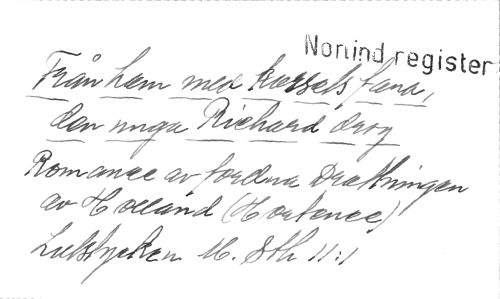 Nonind register
Från hem med korsets fana,
den unga Richard drog
Romance av fordna Drottningen
av Holland (Hortence)
Luktstycken M. Sth 11:1